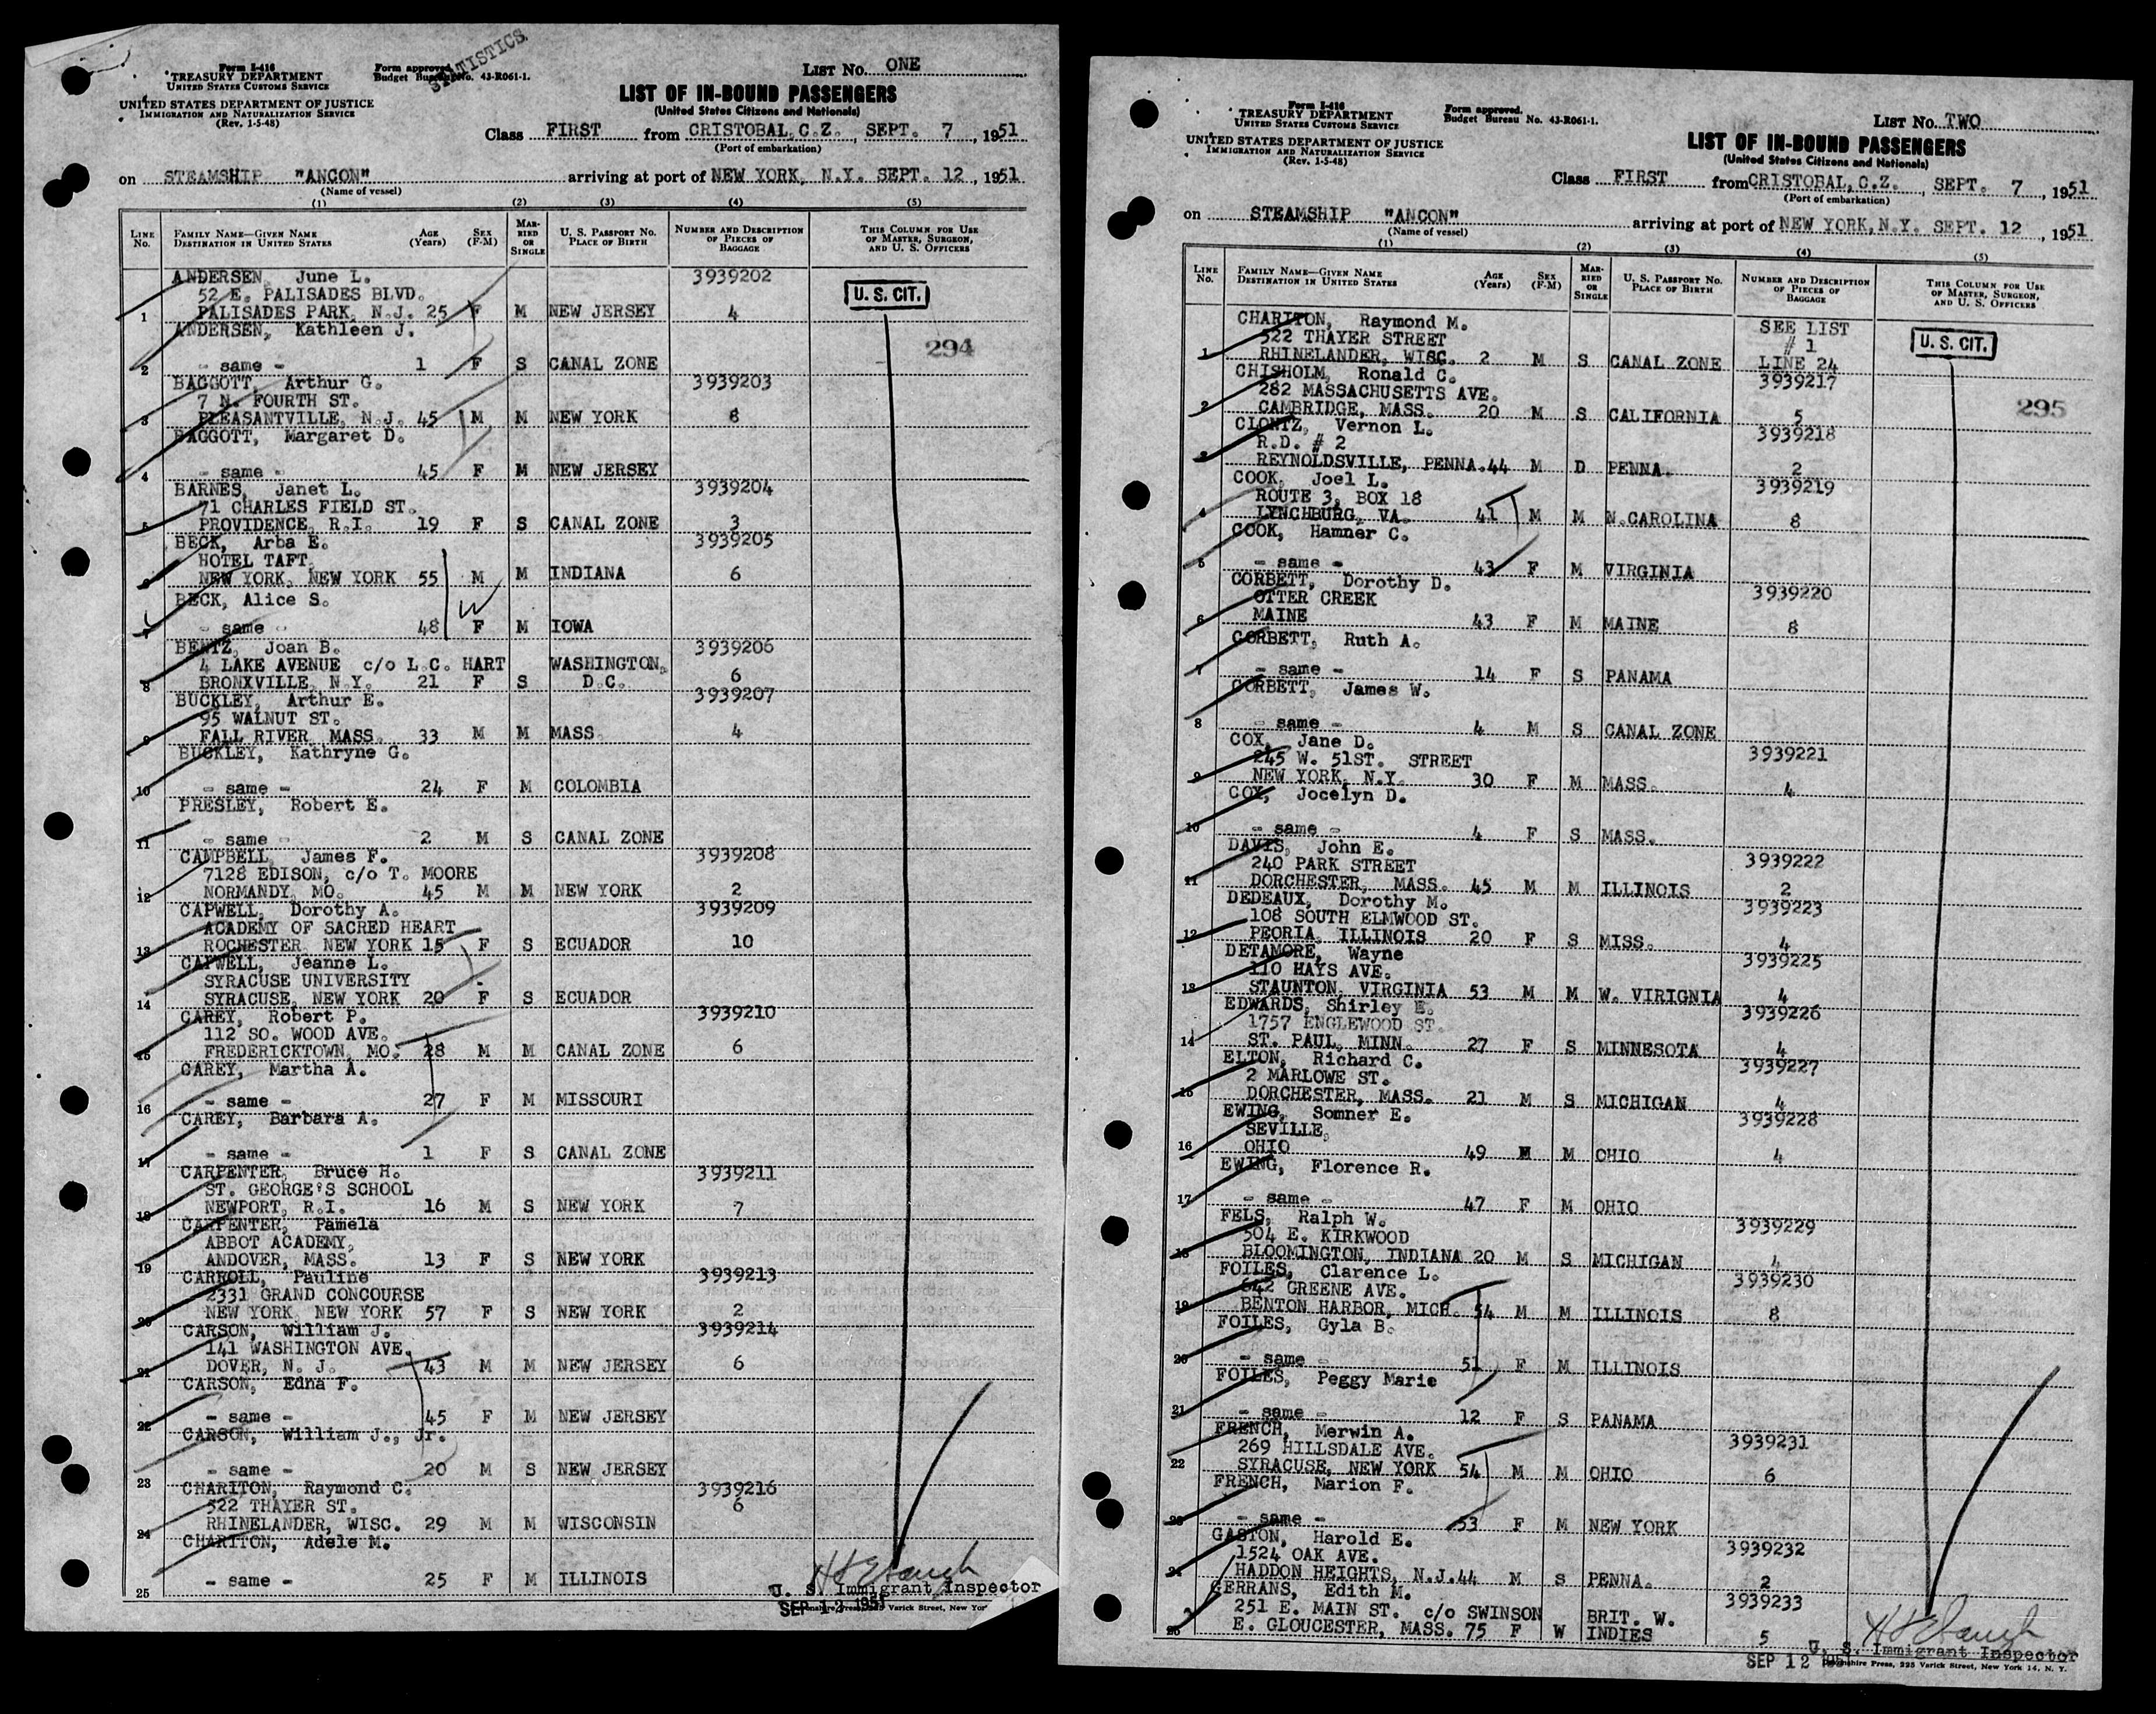 STATISTICS
Form I-416
TREASURY DEPARTMENT
UNITED STATES CUSTOMS SERVICE
UNITED STATES DEPARTMENT OF JUSTICE
IMMIGRATION AND NATURALIZATION SERVICE
(Rev. 1-5-48)
Form approved.
Budget Bureau No. 43-R061-1.
LIST NO. ONE
LIST OF IN-BOUND PASSENGERS
(United States Citizens and Nationals)
Class FIRST from CRISTOBAL, C.Z., SEPT. 7, 1951
(Port of embarkation)
on STEAMSHIP "ANCON" arriving at port of NEW YORK, N.Y. SEPT. 12, 1951
(Name of vessel)
(1) (2) (3) (4) (5)
LINE No. FAMILY NAME—GIVEN NAME DESTINATION IN UNITED STATES AGE (Years) SEX (F-M) MARRIED OR SINGLE U. S. PASSPORT NO. PLACE OF BIRTH NUMBER AND DESCRIPTION OF PIECES OF BAGGAGE THIS COLUMN FOR USE OF MASTER, SURGEON, AND U. S. OFFICERS
ANDERSEN, June L. 3939202
52 E. PALISADES BLVD. U. S. CIT.
1 PALISADES PARK, N.J. 25 F M NEW JERSEY 4
ANDERSEN, Kathleen J.
294
2 - same - 1 F S CANAL ZONE
BAGGOTT, Arthur G. 3939203
7 N. FOURTH ST.
3 PLEASANTVILLE, N.J. 45 M M NEW YORK 8
BAGGOTT, Margaret D.
4 - same - 45 F M NEW JERSEY
BARNES, Janet L. 3939204
71 CHARLES FIELD ST.
5 PROVIDENCE, R.I. 19 F S CANAL ZONE 3
BECK, Arba E. 3939205
HOTEL TAFT,
6 NEW YORK, NEW YORK 55 M M INDIANA 6
BECK, Alice S.
W
7 - same - 48 F M IOWA
BENTZ, Joan B. 3939206
4 LAKE AVENUE c/o L.C. HART WASHINGTON,
8 BRONXVILLE, N.Y. 21 F S D.C. 6
BUCKLEY, Arthur E. 3939207
95 WALNUT ST.
9 FALL RIVER, MASS. 33 M M MASS. 4
BUCKLEY, Kathryne G.
10 - same - 24 F M COLOMBIA
PRESLEY, Robert E.
11 - same - 2 M S CANAL ZONE
CAMPBELL, James F. 3939208
7128 EDISON, c/o T. MOORE
12 NORMANDY, MO. 45 M M NEW YORK 2
CAPWELL, Dorothy A. 3939209
ACADEMY OF SACRED HEART
13 ROCHESTER, NEW YORK 15 F S ECUADOR 10
CAPWELL, Jeanne L.
SYRACUSE UNIVERSITY
14 SYRACUSE, NEW YORK 20 F S ECUADOR
CAREY, Robert P. 3939210
112 SO. WOOD AVE.
15 FREDERICKTOWN, MO. 28 M M CANAL ZONE 6
CAREY, Martha A.
16 - same - 27 F M MISSOURI
CAREY, Barbara A.
17 - same - 1 F S CANAL ZONE
CARPENTER, Bruce H. 3939211
ST. GEORGE'S SCHOOL
18 NEWPORT, R.I. 16 M S NEW YORK 7
CARPENTER, Pamela
ABBOT ACADEMY,
19 ANDOVER, MASS. 13 F S NEW YORK
CARROLL, Pauline 3939213
2331 GRAND CONCOURSE
20 NEW YORK, NEW YORK 57 F S NEW YORK 2
CARSON, William J. 3939214
141 WASHINGTON AVE.
21 DOVER, N. J. 43 M M NEW JERSEY 6
CARSON, Edna F.
22 - same - 45 F M NEW JERSEY
CARSON, William J., Jr.
23 - same - 20 M S NEW JERSEY
CHARITON, Raymond C. 3939216
522 THAYER ST. 6
24 RHINELANDER, WISC. 29 M M WISCONSIN
CHARITON, Adele M.
25 - same - 25 F M ILLINOIS
U. S. Immigrant Inspector
SEP 12 1951
Varick Street, New Yor
Form I-416
TREASURY DEPARTMENT
UNITED STATES CUSTOMS SERVICE
UNITED STATES DEPARTMENT OF JUSTICE
IMMIGRATION AND NATURALIZATION SERVICE
(Rev. 1-5-48)
Form approved.
Budget Bureau No. 43-R061-1.
LIST NO. TWO
LIST OF IN-BOUND PASSENGERS
(United States Citizens and Nationals)
Class FIRST from CRISTOBAL, C.Z., SEPT. 7, 1951
(Port of embarkation)
on STEAMSHIP "ANCON" arriving at port of NEW YORK, N.Y. SEPT. 12, 1951
(Name of vessel)
(1) (2) (3) (4) (5)
LINE No. FAMILY NAME—GIVEN NAME DESTINATION IN UNITED STATES AGE (Years) SEX (F-M) MARRIED OR SINGLE U. S. PASSPORT NO. PLACE OF BIRTH NUMBER AND DESCRIPTION OF PIECES OF BAGGAGE THIS COLUMN FOR USE OF MASTER, SURGEON, AND U. S. OFFICERS
CHARITON, Raymond M. SEE LIST
522 THAYER STREET # 1 U. S. CIT.
1 RHINELANDER, WISC. 2 M S CANAL ZONE LINE 24
CHISHOLM, Ronald C. 3939217
282 MASSACHUSETTS AVE.
2 CAMBRIDGE, MASS. 20 M S CALIFORNIA 5 295
CLONTZ, Vernon L. 3939218
R.D. # 2
3 REYNOLDSVILLE, PENNA. 44 M D PENNA. 2
COOK, Joel L. 3939219
ROUTE 3, BOX 18
4 LYNCHBURG, VA. 41 M M N.CAROLINA 8
COOK, Hamner C.
5 - same - 43 F M VIRGINIA
CORBETT, Dorothy D. 3939220
OTTER CREEK
6 MAINE 43 F M MAINE 8
CORBETT, Ruth A.
7 - same - 14 F S PANAMA
CORBETT, James W.
8 - same - 4 M S CANAL ZONE
COX, Jane D. 3939221
245 W. 51ST. STREET
9 NEW YORK, N.Y. 30 F M MASS. 4
COX, Jocelyn D.
10 - same - 4 F S MASS.
DAVIS, John E. 3939222
240 PARK STREET
11 DORCHESTER, MASS. 45 M M ILLINOIS 2
DEDEAUX, Dorothy M. 3939223
108 SOUTH ELMWOOD ST.
12 PEORIA, ILLINOIS 20 F S MISS. 4
DETAMORE, Wayne 3939225
110 HAYS AVE.
13 STAUNTON, VIRGINIA 53 M M W. VIRIGNIA 4
EDWARDS, Shirley E. 3939226
1757 ENGLEWOOD ST.
14 ST. PAUL, MINN. 27 F S MINNESOTA 4
ELTON, Richard C. 3939227
2 MARLOWE ST.
15 DORCHESTER, MASS. 21 M S MICHIGAN 4
EWING, Somner E. 3939228
SEVILLE,
16 OHIO 49 M M OHIO 4
EWING, Florence R.
17 - same - 47 F M OHIO
FELS, Ralph W. 3939229
504 E. KIRKWOOD
18 BLOOMINGTON, INDIANA 20 M S MICHIGAN 4
FOILES, Clarence L. 3939230
642 GREENE AVE.
19 BENTON HARBOR, MICH. 54 M M ILLINOIS 8
FOILES, Gyla B.
20 - same - 51 F M ILLINOIS
FOILES, Peggy Marie
21 - same - 12 F S PANAMA
FRENCH, Merwin A. 3939231
269 HILLSDALE AVE.
22 SYRACUSE, NEW YORK 54 M M OHIO 6
FRENCH, Marion F.
23 - same - 53 F M NEW YORK
GASTON, Harold E. 3939232
1524 OAK AVE.
24 HADDON HEIGHTS, N.J. 44 M S PENNA. 2
GERRANS, Edith M. 3939233
251 E. MAIN ST. c/o SWINSON BRIT. W.
25 E. GLOUCESTER, MASS. 75 F W INDIES 5
U. S. Immigrant Inspector
SEP 12 1951
Press, 225 Varick Street, New York 14, N. Y.